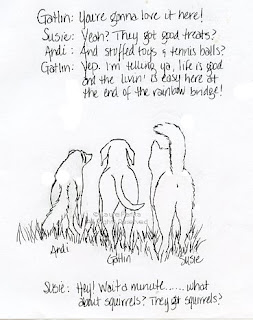 Gatlin: You're gonna love it here!
Susie: Yeah? They got good treats?
Andi: And stuffed toys & tennis balls?
Gatlin: Yep. I'm telling ya, life is good
and the livin' is easy here at
the end of the rainbow bridge!
Andi
Gatlin
Susie
Susie: Hey! Wait a minute......what
about squirrels? They got squirrels?